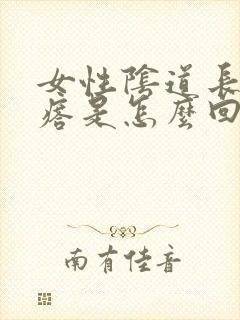 女性陰道長
痞是怎麼回
南有佳音